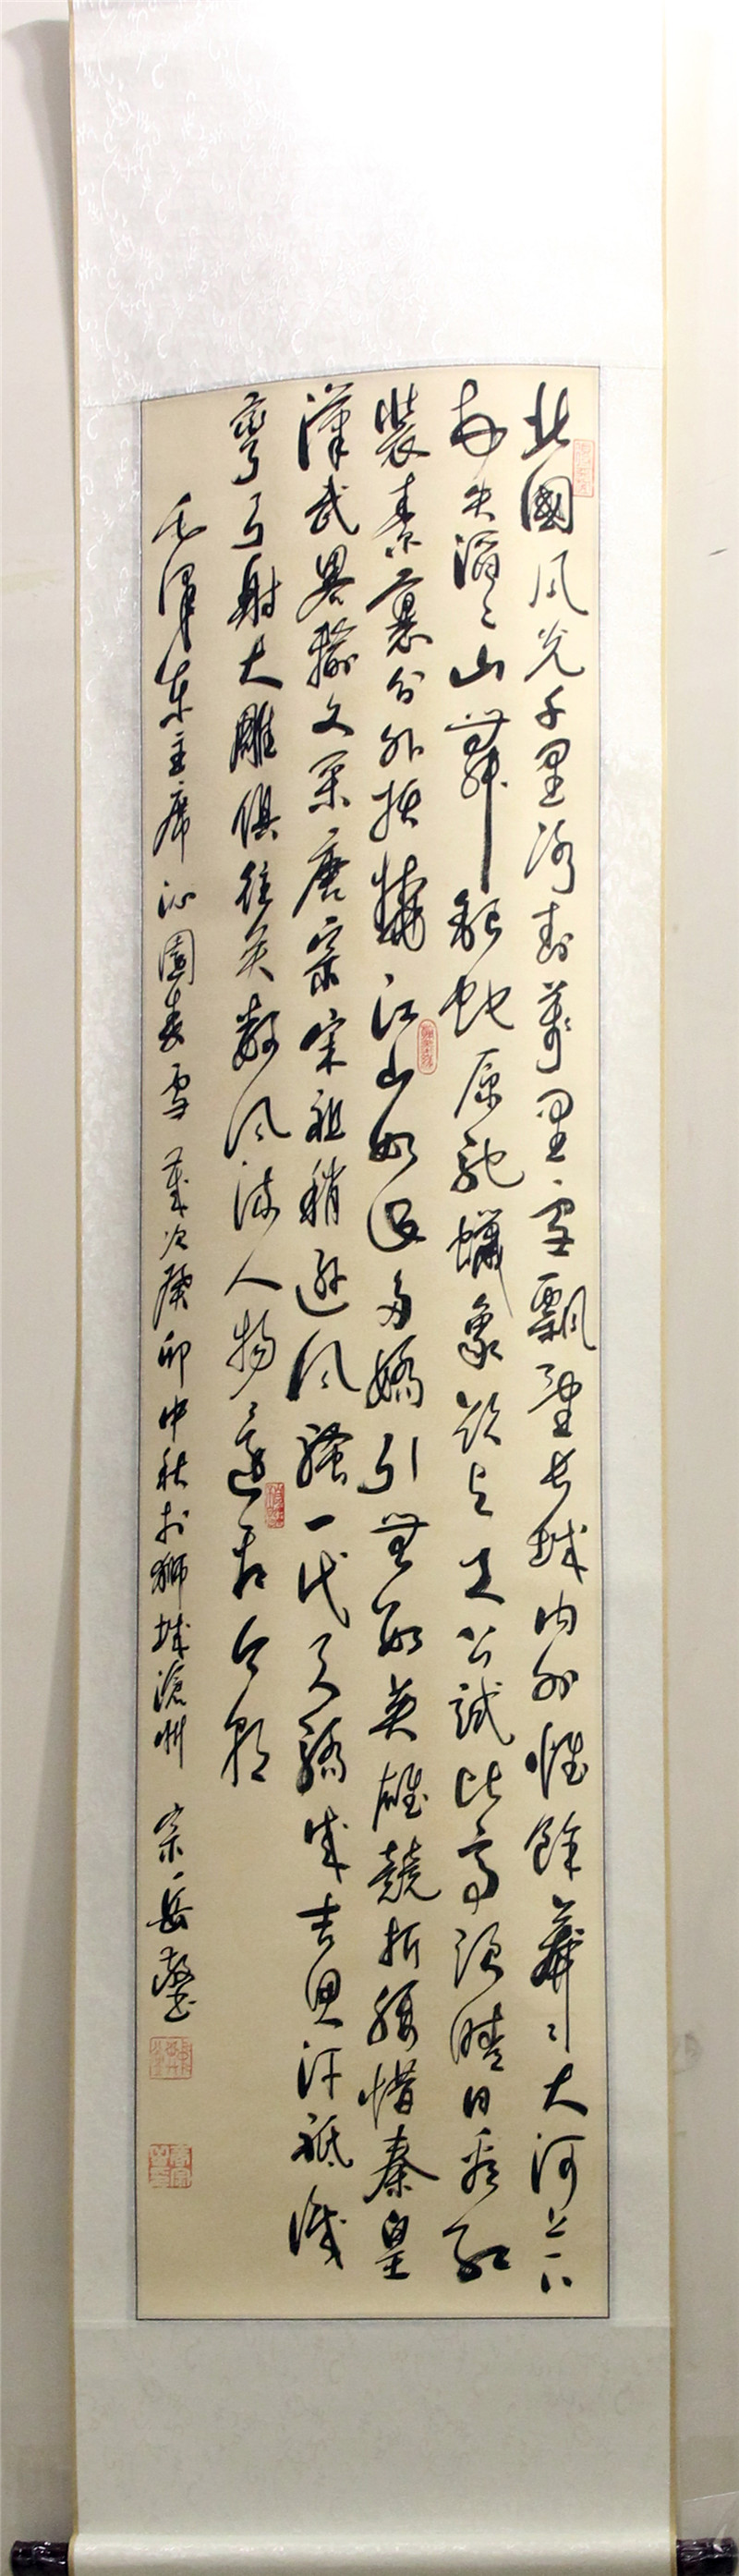 北國風光千里冰封萬里雪飄望長城內外惟餘莽々大河上下
頓失滔々山舞銀蛇原馳蠟象欲與天公試比高須晴日看紅
裝素裹分外妖嬈江山如此多嬌引無數英雄競折腰惜秦皇
漢武略輸文采唐宗宋祖稍遜風騷一代天驕成吉思汗祗識
彎弓射大雕俱往矣數風流人物還看今朝
毛澤東主席沁園春雪 歲次癸卯中秋於獅城滄州 宗岳